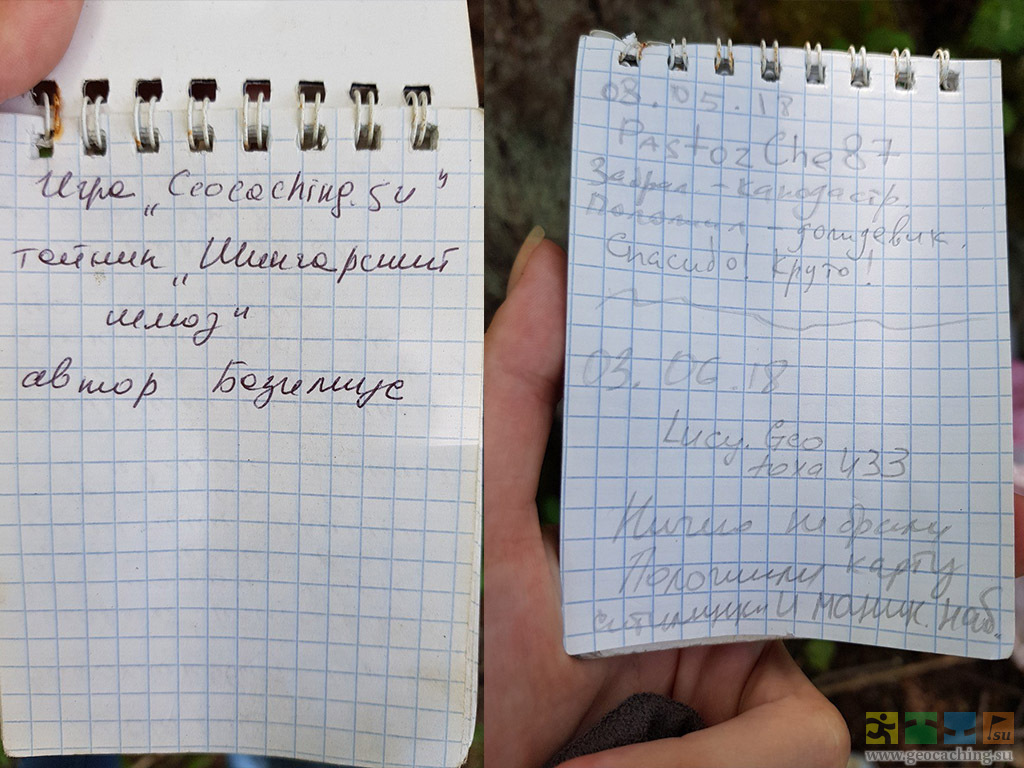 Игра „Geocaching.su"
тайник „Шингарский
шлюз"
автор Базилиус
08.05.18
PAstorChe87
Забрал - канодастр.
Положил - дождевик.
Спасибо! Круто!
03.06.18
Lucy.Geo
toxa433
Ничего не брали
Положили карту
и маник. наб.
.su
www.geocaching.su